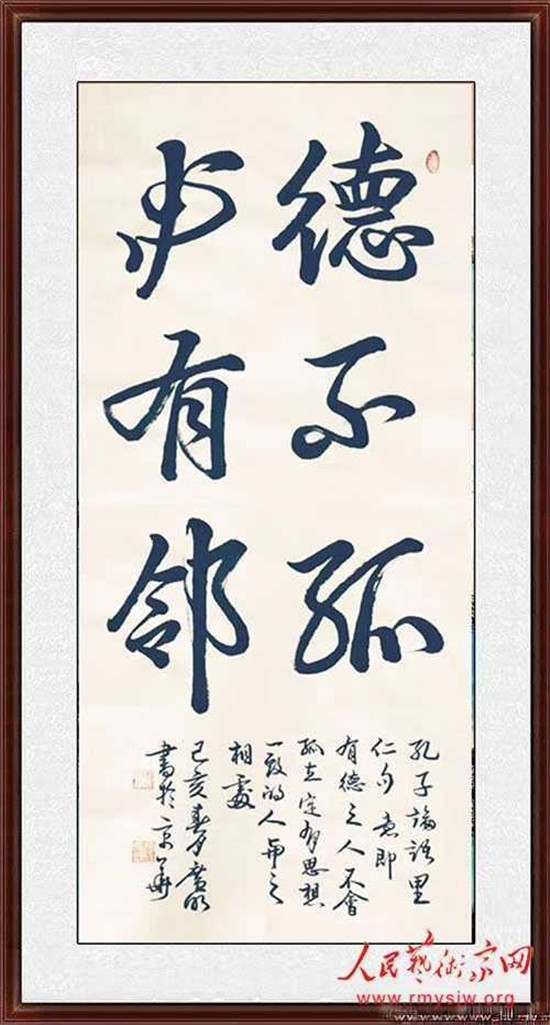 德不孤
必有邻
孔子論語里
仁句意即
有德之人不會
孤立定有思想
一致的人與之
相處
己亥春月
書於京華
人民藝術家网
www.rmysjw.org